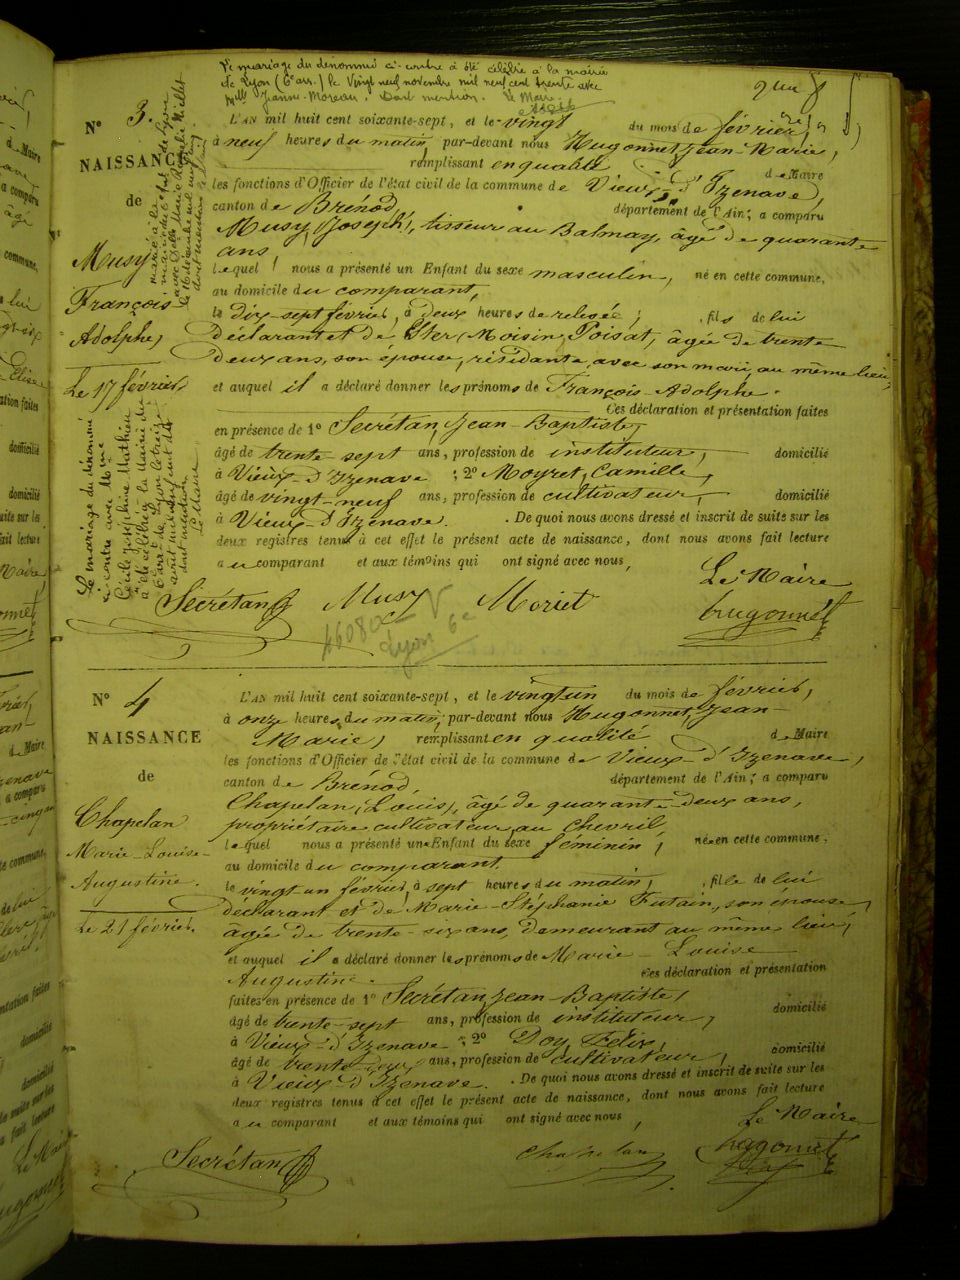 Le mariage du dénommé ci-contre a été célébré à la mairie
de Lyon (6e arr.) le Vingt neuf novembre mil neuf cent trente avec
Mlle Jeanne Moreau. Dont mention. Le Maire
N° 3.
NAISSANCE
de
Musy
François
Adolphe,
Le 17 février.
marié à la
mairie du 6e arr. de Lyon
avec Delle Marie
le 16 décembre mil
dont mention
Le mariage du dénommé
ci contre avec Mme
Mathieu
a été célébré à la Mairie du
6e arr. de Lyon le treize
août mil neuf cent
dont mention
Le Maire
L'AN mil huit cent soixante-sept, et le vingt du mois de février,
à neuf heures du matin, par-devant nous Hugonnet, Jean-Marie,
remplissant en qualité de Maire
les fonctions d'Officier de l'état civil de la commune de Vieux-d'Izenave,
canton de Brénod, département de l'Ain; a comparu
Musy, (Joseph), tisseur au Balmay, âgé de quarante
ans,
lequel nous a présenté un Enfant du sexe masculin, né en cette commune,
au domicile du comparant,
le dix-sept février, à deux heures de relevée, fils de lui
déclarant et de Ster, (Moisin) Poisat, âgée de trente
deux ans, son épouse, résidante avec son mari, au même lieu,
et auquel il a déclaré donner les prénoms de François-Adolphe.
Ces déclaration et présentation faites
en présence de 1° Secrétan, Jean-Baptiste,
âgé de trente sept ans, profession de instituteur, domicilié
à Vieux-d'Izenave; 2° Moyret, Camille,
âgé de vingt-neuf ans, profession de cultivateur, domicilié
à Vieux-d'Izenave. De quoi nous avons dressé et inscrit de suite sur les
deux registres tenus à cet effet le présent acte de naissance, dont nous avons fait lecture
au comparant et aux témoins qui ont signé avec nous,
Le Maire
Secrétan Musy Moriet Hugonnet
46080 V
Lyon 6e
N° 4
NAISSANCE
de
Chapelan
Marie-Louise-
Augustine.
Le 21 février.
L'AN mil huit cent soixante-sept, et le vingt un du mois de février,
à onze heures du matin, par-devant nous Hugonnet, Jean-
Marie, remplissant en qualité de Maire
les fonctions d'Officier de l'état civil de la commune de Vieux-d'Izenave,
canton de Brénod, département de l'Ain; a comparu
Chapelan, (Louis), âgé de quarante-deux ans,
propriétaire cultivateur au Chevril,
lequel nous a présenté une Enfant du sexe féminin, née en cette commune,
au domicile du comparant,
le vingt un février, à sept heures du matin, fille de lui
déclarant et de Marie-Stéphanie Futain, son épouse,
âgée de trente six ans, demeurant au même lieu,
et auquel il a déclaré donner les prénoms de Marie-Louise
Augustine. Ces déclaration et présentation
faites en présence de 1° Secrétan, Jean-Baptiste,
âgé de trente-sept ans, profession de instituteur, domicilié
à Vieux-d'Izenave; 2° Doy, Félix,
âgé de trente ans, profession de cultivateur, domicilié
à Vieux d'Izenave. De quoi nous avons dressé et inscrit de suite sur les
deux registres tenus à cet effet le présent acte de naissance, dont nous avons fait lecture
au comparant et aux témoins qui ont signé avec nous,
Le Maire
Secrétan Chapelan Hugonnet